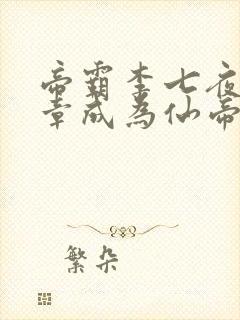 帝霸李七夜
章成为仙帝
繁朵